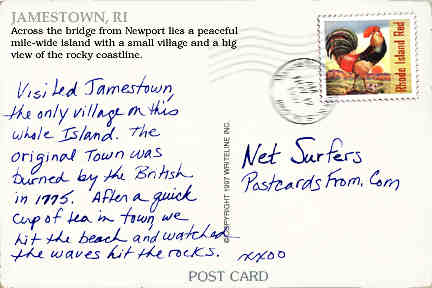 JAMESTOWN, RI
Across the bridge from Newport lies a peaceful
mile-wide island with a small village and a big
view of the rocky coastline.
Visited Jamestown,
the only village on this
whole Island. The
original Town was
burned by the British
in 1775. After a quick
cup of tea in town we
hit the beach and watched
the waves hit the rocks.
xxoo
© COPYRIGHT 1997 WRITELINE INC.
Rhode Island Red
Net Surfers
Postcards From. Com
POST CARD